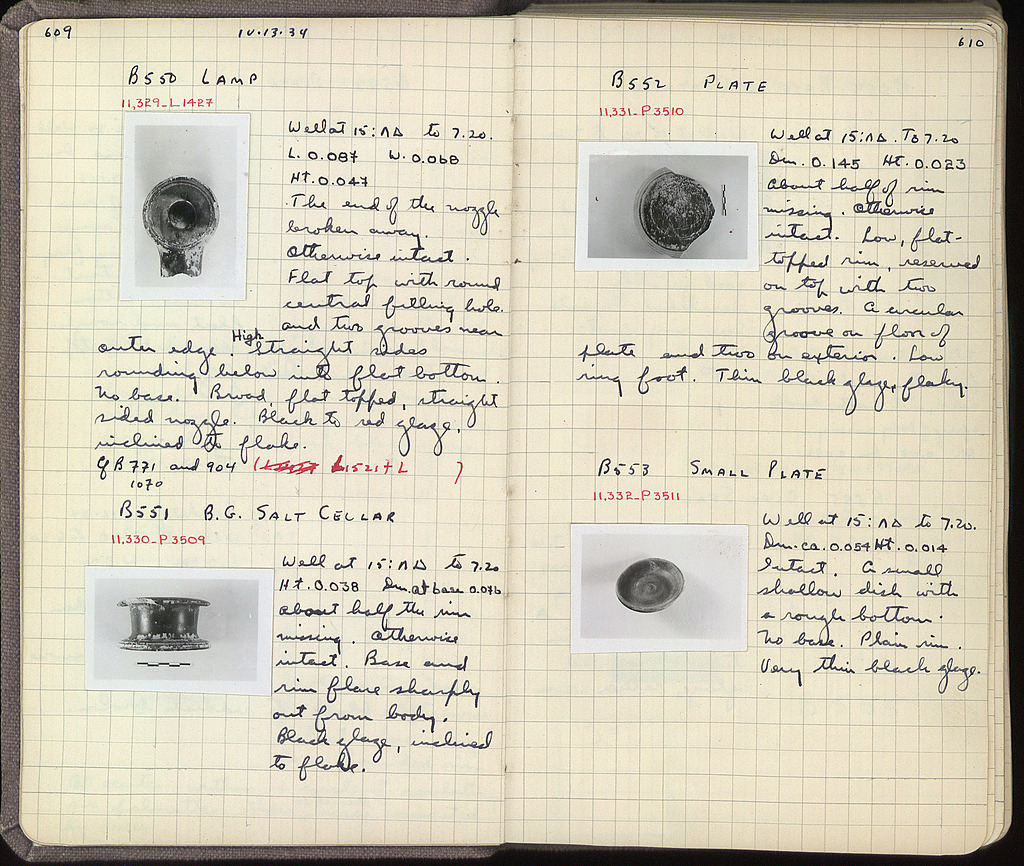 609
10.13.34
B550 LAMP
11,329_L 1427
Well at 15:ΛΔ to 7.20.
L. 0.087 W. 0.068
Ht. 0.047
The end of the nozzle
broken away.
Otherwise intact.
Flat top with round
central filling hole
and two grooves near
outer edge. High straight sides
rounding below into flat bottom.
No base. Broad, flat topped, straight
sided nozzle. Black to red glaze,
inclined to flake.
Cf B 771 and 904 ( L1521 + L )
1070
B551 B.G. SALT CELLAR
11,330_P3509
Well at 15:ΛΔ to 7.20
Ht. 0.038 Dm. at base 0.076
About half the rim
missing. Otherwise
intact. Base and
rim flare sharply
out from body.
Black glaze, inclined
to flake.
610
B552 PLATE
11,331_P3510
Well at 15:ΛΔ. To 7.20
Dm. 0.145 Ht. 0.023
About half of rim
missing. Otherwise
intact. Low, flat-
topped rim, reserved
on top with two
grooves. A circular
groove on floor of
plate and two on exterior. Low
ring foot. Thin black glaze, flaky.
B553 SMALL PLATE
11,332_P3511
Well at 15:ΛΔ to 7.20.
Dm. ca. 0.054 Ht. 0.014
Intact. A small
shallow dish with
a rough bottom.
No base. Plain rim.
Very thin black glaze.